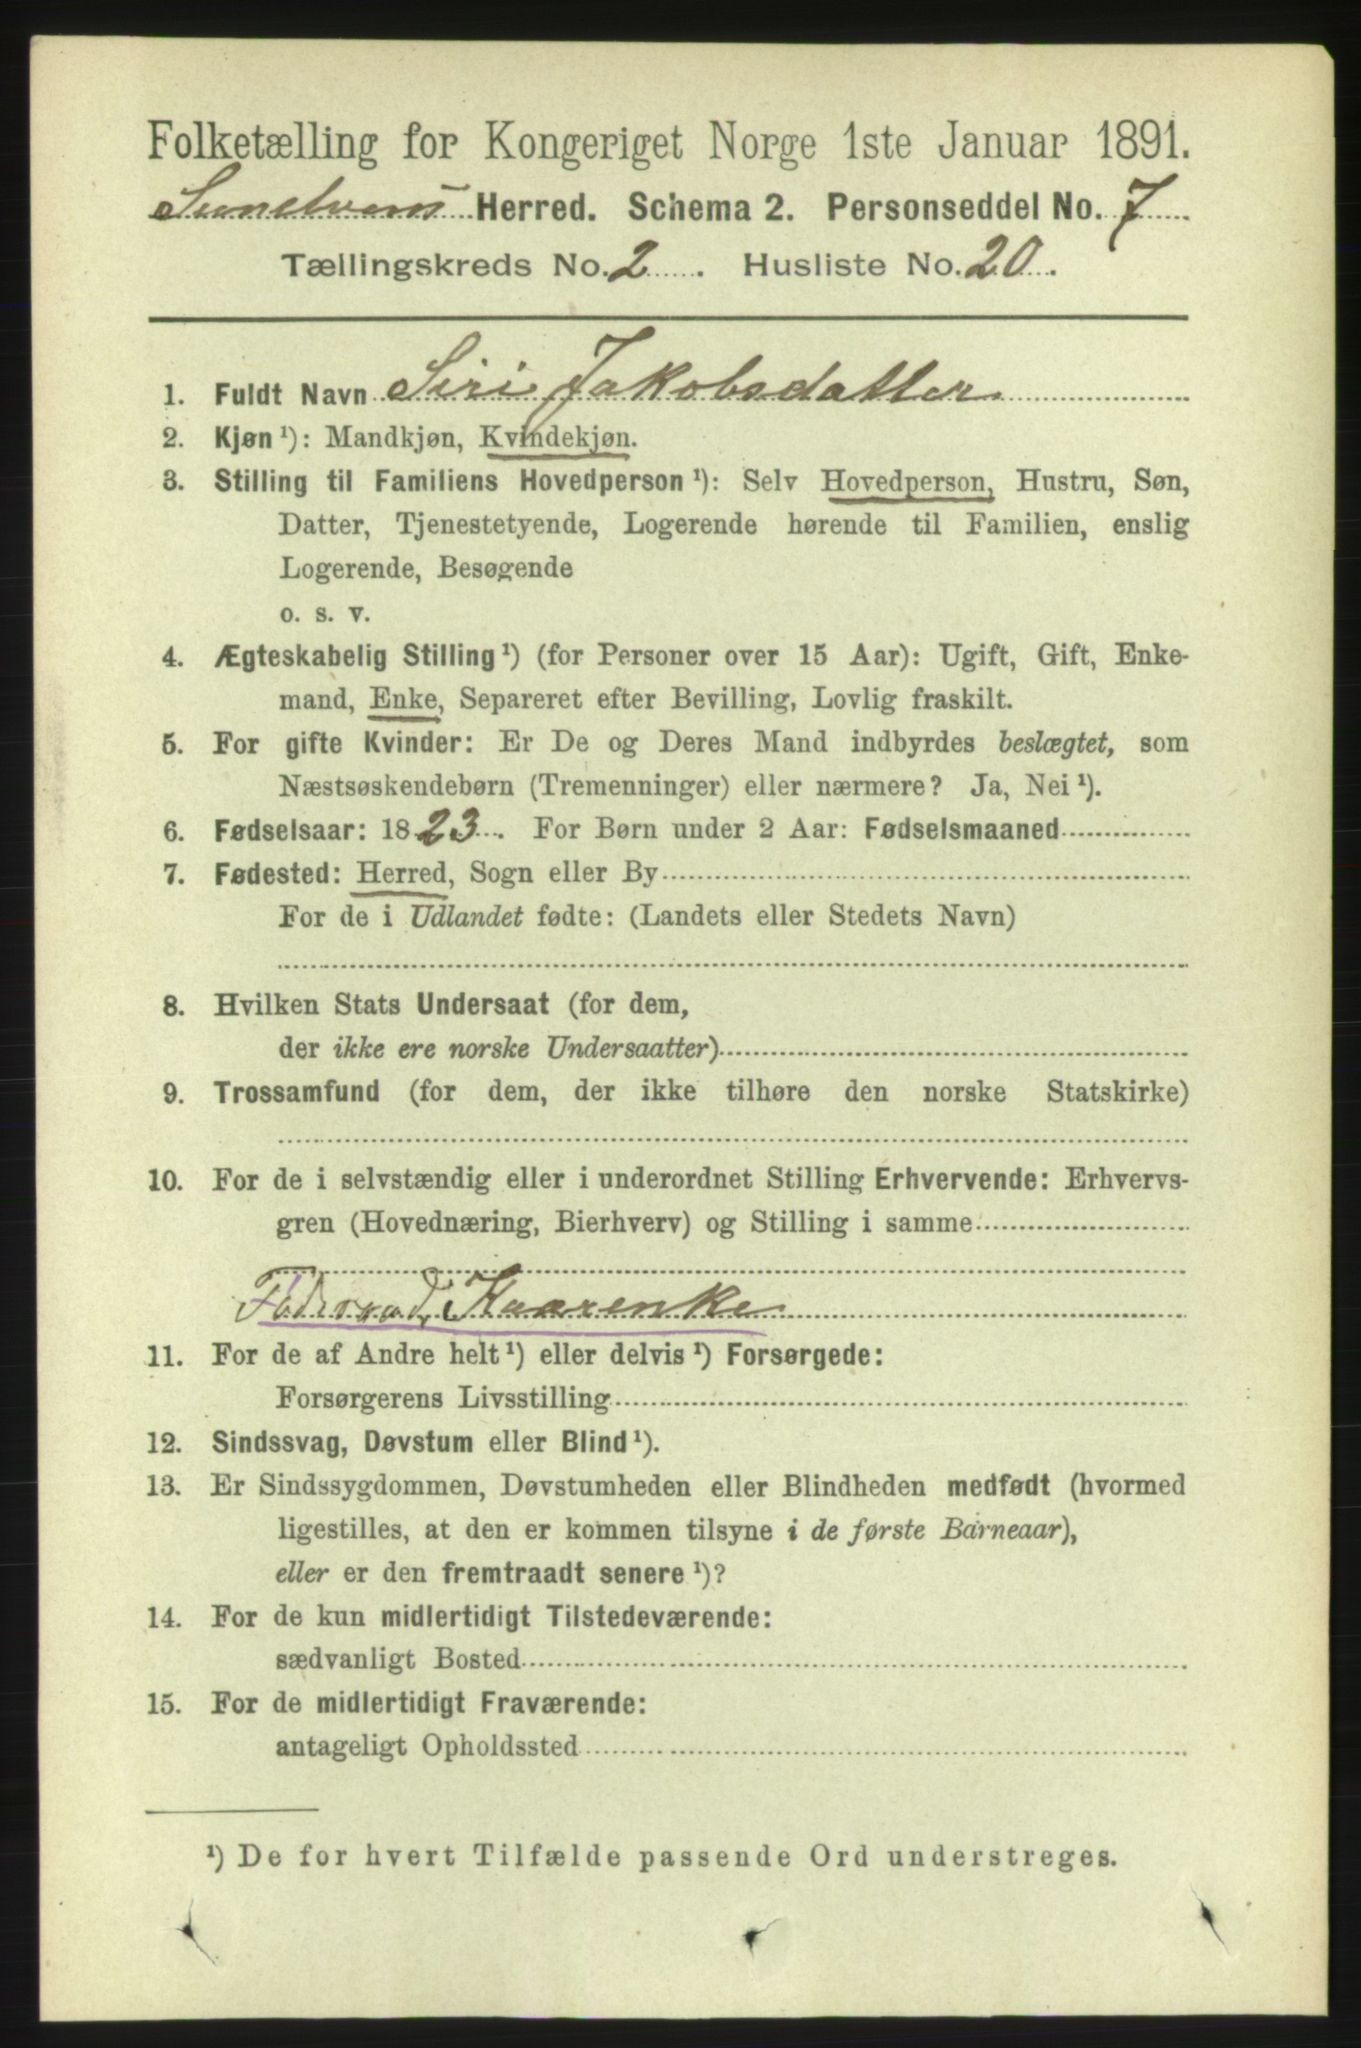 Folketælling for Kongeriget Norge 1ste Januar 1891.
Sunelvens Herred. Schema 2. Personseddel No. 7
Tællingskreds No. 2. Husliste No. 20.
1. Fuldt Navn Siri Jakobsdatter
2. Kjøn ¹): Mandkjøn, Kvindekjøn.
3. Stilling til Familiens Hovedperson ¹): Selv Hovedperson, Hustru, Søn,
Datter, Tjenestetyende, Logerende hørende til Familien, enslig
Logerende, Besøgende
o. s. v.
4. Ægteskabelig Stilling ¹) (for Personer over 15 Aar): Ugift, Gift, Enke-
mand, Enke, Separeret efter Bevilling, Lovlig fraskilt.
5. For gifte Kvinder: Er De og Deres Mand indbyrdes beslægtet, som
Næstsøskendebørn (Tremenninger) eller nærmere? Ja, Nei ¹).
6. Fødselsaar: 1823. For Børn under 2 Aar: Fødselsmaaned
7. Fødested: Herred, Sogn eller By
For de i Udlandet fødte: (Landets eller Stedets Navn)
8. Hvilken Stats Undersaat (for dem,
der ikke ere norske Undersaatter)
9. Trossamfund (for dem, der ikke tilhøre den norske Statskirke)
10. For de i selvstændig eller i underordnet Stilling Erhvervende: Erhvervs-
gren (Hovednæring, Bierhverv) og Stilling i samme
Føderaad, Kaarenke
11. For de af Andre helt ¹) eller delvis ¹) Forsørgede:
Forsørgerens Livsstilling
12. Sindssvag, Døvstum eller Blind ¹).
13. Er Sindssygdommen, Døvstumheden eller Blindheden medfødt (hvormed
ligestilles, at den er kommen tilsyne i de første Barneaar),
eller er den fremtraadt senere ¹)?
14. For de kun midlertidigt Tilstedeværende:
sædvanligt Bosted
15. For de midlertidigt Fraværende:
antageligt Opholdssted
¹) De for hvert Tilfælde passende Ord understreges.